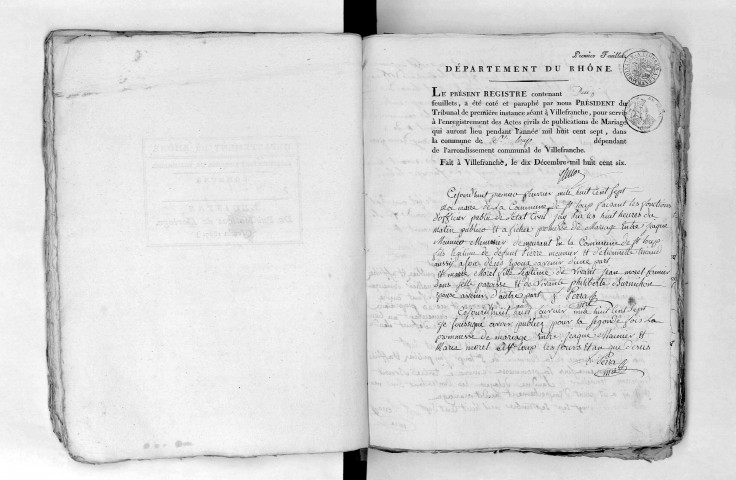 Première Feuillet
DÉPARTEMENT DU RHÔNE.
LE PRÉSENT REGISTRE contenant Deux
feuillets, a été coté et paraphé par nous PRÉSIDENT du
Tribunal de première instance séant à Villefranche, pour servir
à l'enregistrement des Actes civils de publications de Mariage
qui auront lieu pendant l'année mil huit cent sept, dans
la commune de St. Loup dépendant
de l'arrondissement communal de Villefranche.
Fait à Villefranche, le dix Décembre mil huit cent six.
Cejourdhuit premier fevrier mile huit Cent Sept
maire de La Commune de St loup faisant les fonctions
dofficier public de letat Civil Jay sur les huit heures du
Matin publier et aficher promesse de Mariage Entre Jaque
Meunier demeurant En la Commune de St loup
fils legitime de defunt Pierre meunier et
aussi époux avenir dune part
et marie Morel fille legitime de vivant Jean morel fermier
dans parroisse et de vivante philiberte
epouse avenir dautre part Perra
mre
Cejourdhuit huit fevrier mile huit Cent Sept
je soussigné avoir publier pour la segonde fois La
promesse de mariage entre Jaque Meunier et
Marie morel a St loup les jours et an que desus
Perra
mre